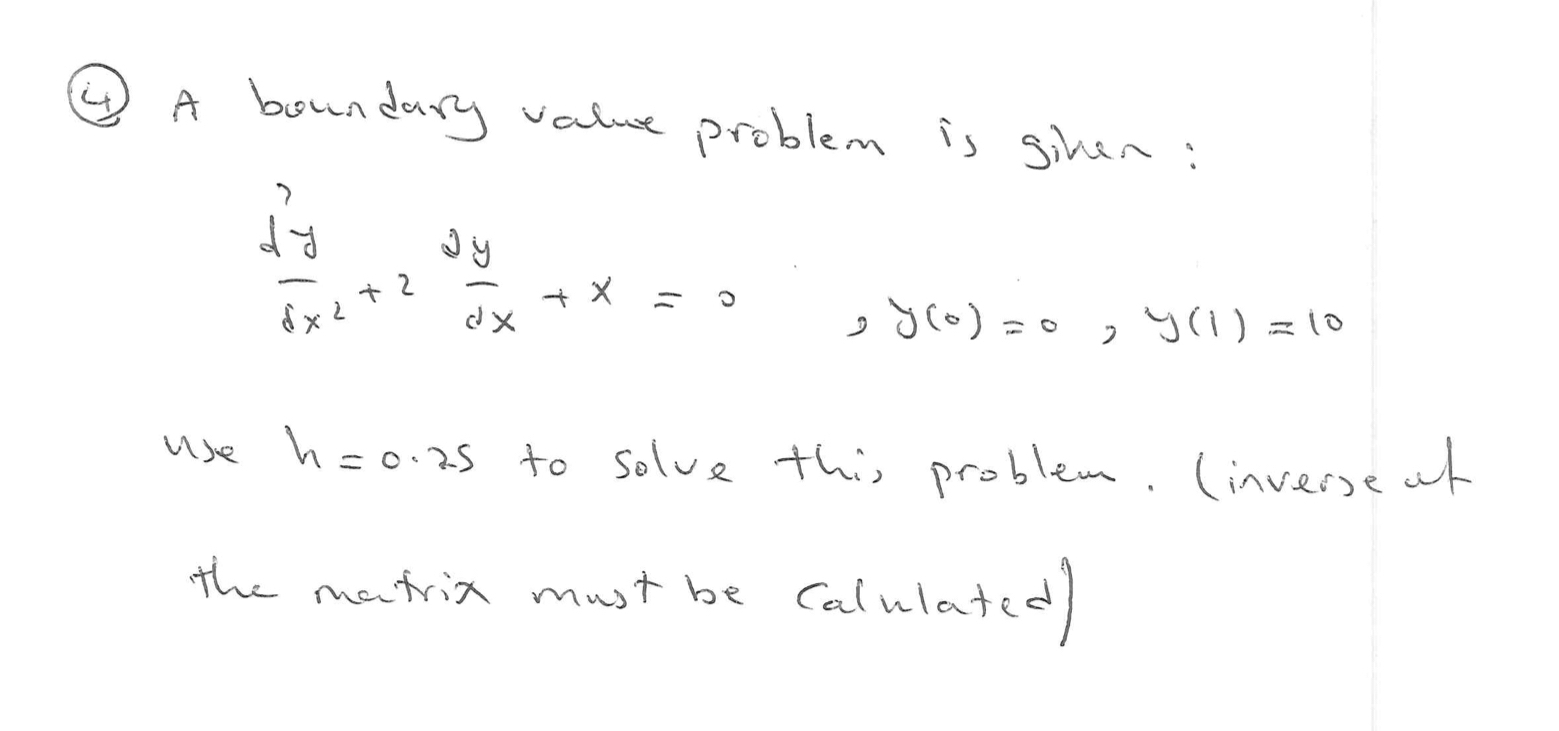 ④ A boundary value problem is given :
d²y/dx² + 2 dy/dx + x = 0 , y(0) = 0 , y(1) = 10
use h = 0.25 to solve this problem. (inverse of
the matrix must be calulated)